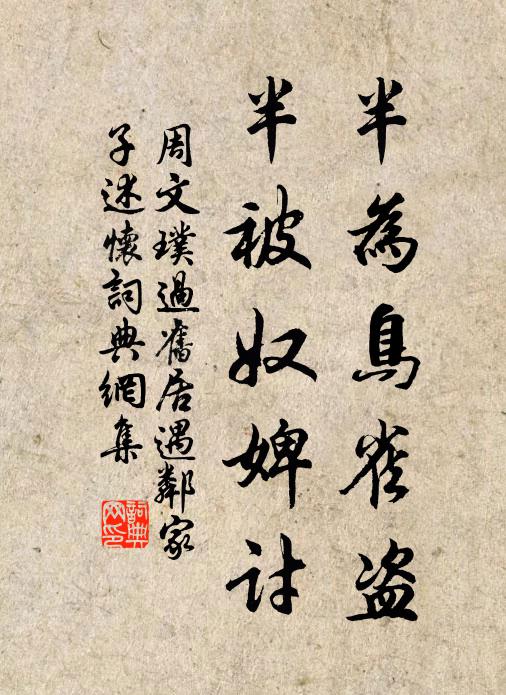 半為鳥雀盜
半被奴婢討
周文璞過舊居遇鄰家
子述懷詞典網集
詞典
网印